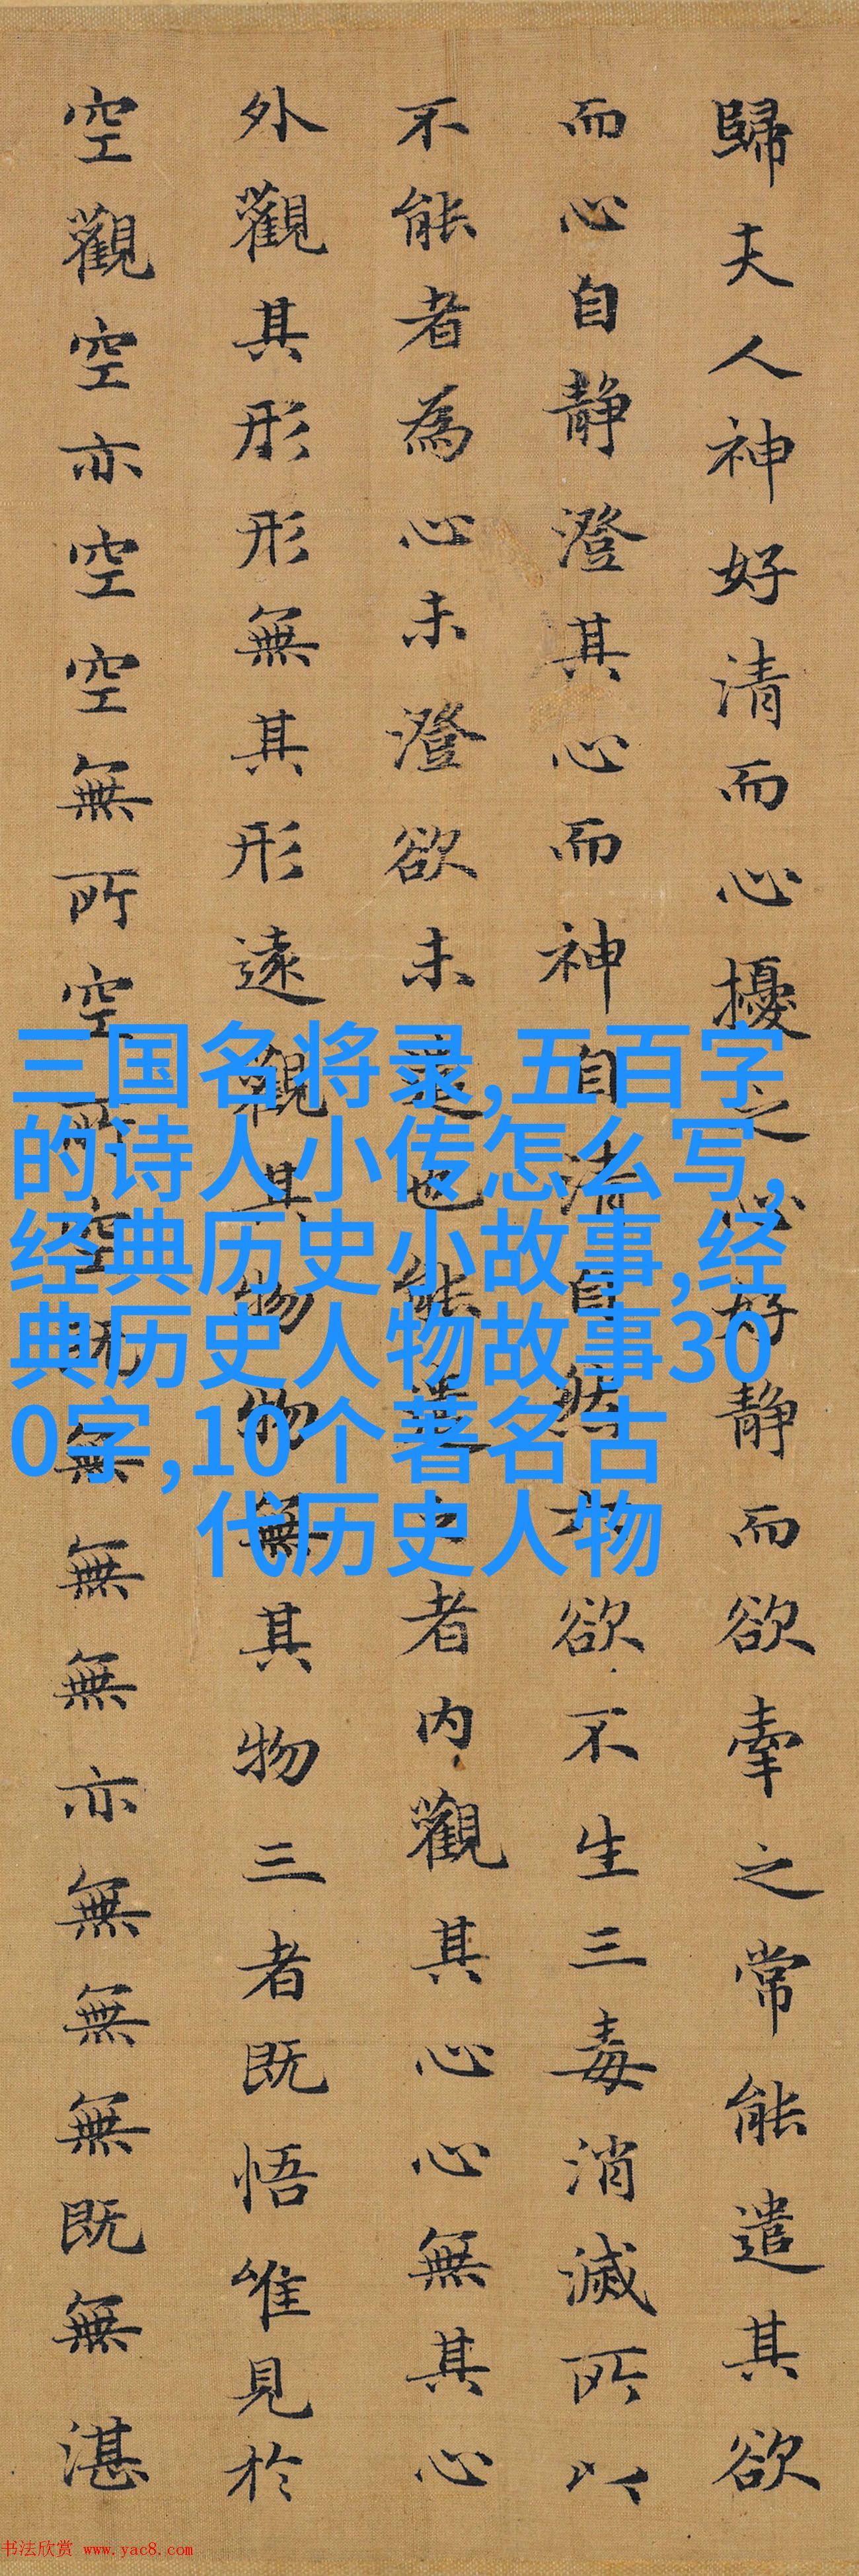 歸夫人神好清而心擾之心好静而欲牽之常能遣其欲
而心自静澄其心而神自清自然六欲不生三毒消滅所以
不能者為心未澄欲未遣也能遣之者内觀其心心無其心
外觀其形形無其形遠觀其物物無其物三者既悟唯見於
空觀空亦空空無所空所空既無無無亦無無無既無湛
三国名将录,五百字
的诗人小传怎么写,
经典历史小故事,经
典历史人物故事30
0字,10个著名古
代历史人物
书法欣赏 www.yac8.com